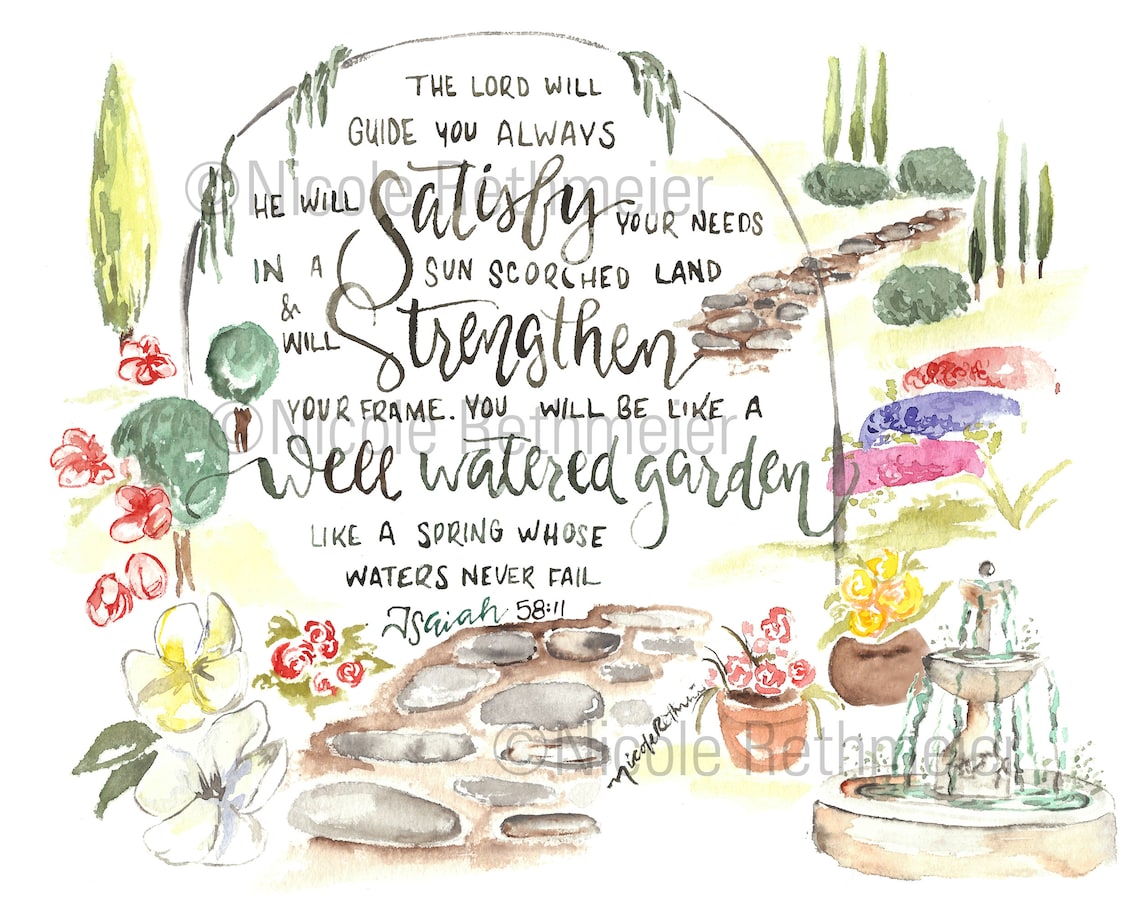 THE LORD WILL
GUIDE YOU ALWAYS
©Nicole Rethmeier
HE WILL Satisfy YOUR NEEDS
IN A SUN SCORCHED LAND
& WILL Strengthen
YOUR FRAME. YOU WILL BE LIKE A
©Nicole Rethmeier
Well watered garden
LIKE A SPRING WHOSE
WATERS NEVER FAIL
Isaiah 58:11
Nicole Rethmeier
©Nicole Rethmeier